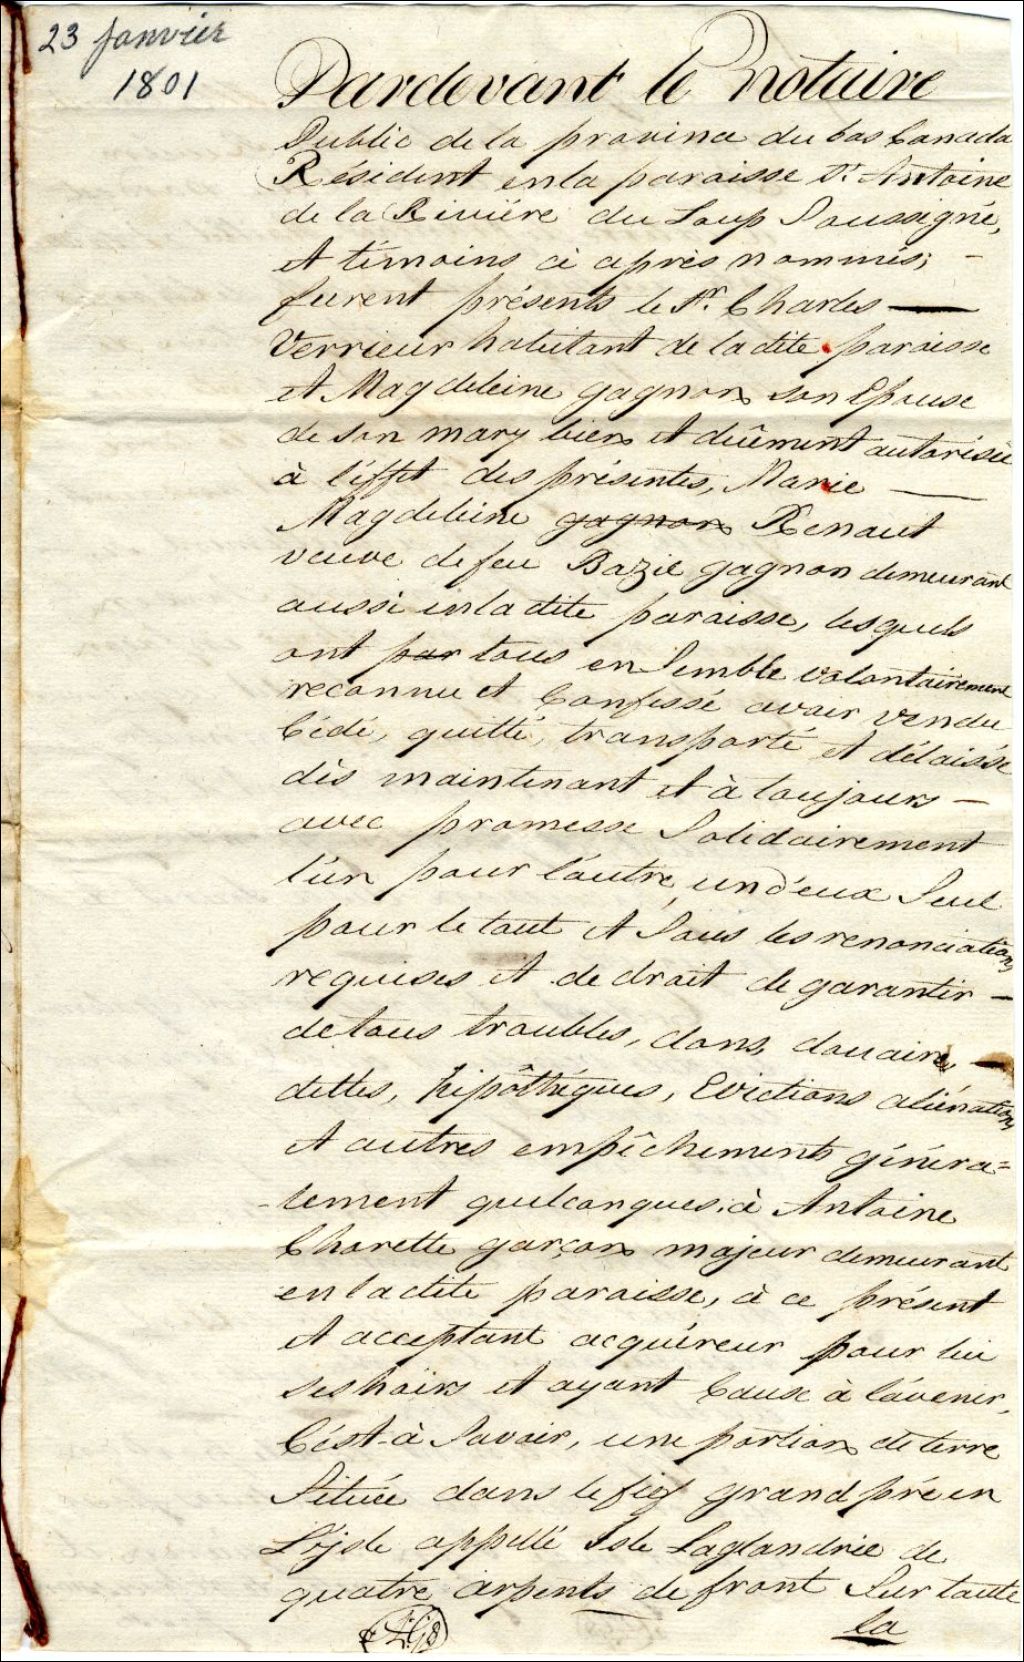 23 Janvier
1801
Pardevant le Notaire
Public de la province du bas Canada
Résident en la paroisse St. Antoine
de la Riviére du Loup Soussigné,
et témoins ci après nommés; -
furent présents le Sr. Charles —
Verrieur habitant de la dite paroisse
et Magdeleine gagnon son Epouse
de son mary bien et duêment autorisée
à l'éffet des présentes, Marie —
Magdeleine gagnon Renaut
veuve de feu Bazil gagnon demeurant
aussi en la dite paroisse, lesquels
ont par tous en Semble volontairement
reconnu et Confessé avoir vendu
Cédé, quitté, transporté et délaissé
dès maintenant et à toujours —
avec promesse Solidairement
l'un pour l'autre, un d'eux Seul
pour le tout et Sous les renonciations
requises et de droit de garantir —
de tous troubles, dons, douaire, —
dettes, hipôthéques, Evictions aliénations
et autres empêchements généra=
-lement quelconques, à Antoine
Charette garçon majeur demeurant
en la dite paroisse, à ce présent
et acceptant acquéreur pour lui
ses hoirs et ayant Cause à l'avenir,
C'ést-à Savoir, une portion de terre
Située dans le fief grand pré en
L'isle appellé Isle Laglandrie de
quatre arpents de front Sur toute
la